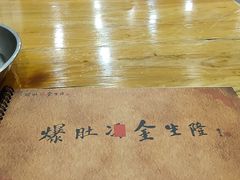 爆肚冯金生隆